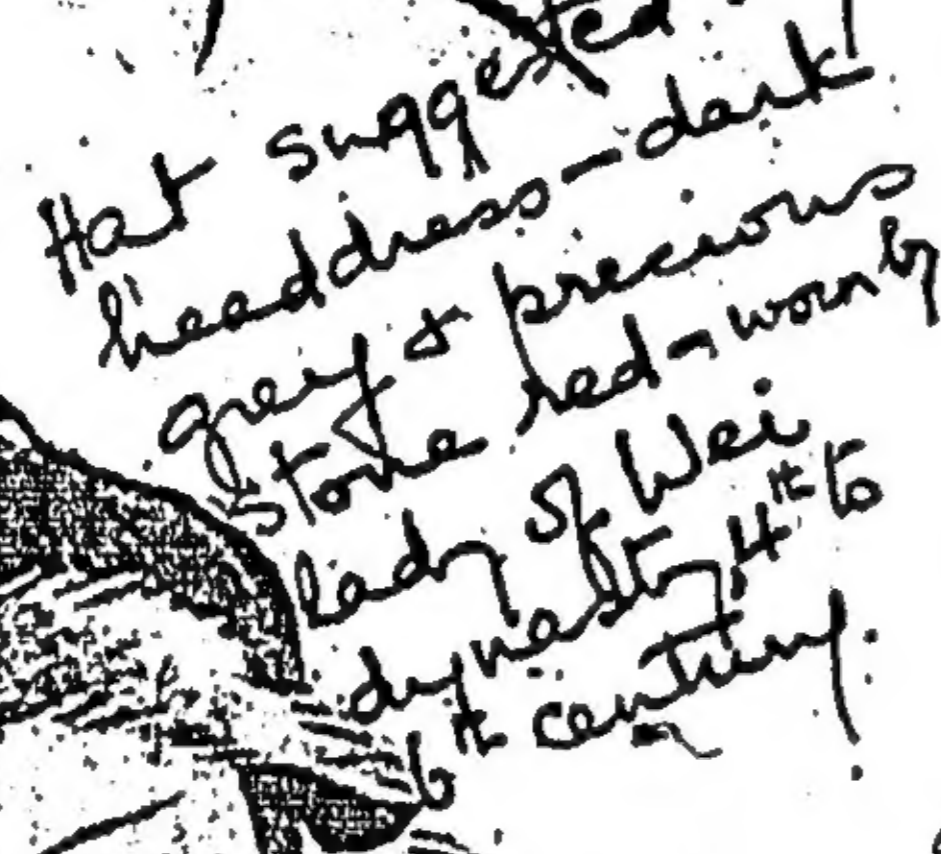 Hat suggested
headdress – dark
grey & precious
stone red – worn by
lady of Wei
dynasty, 4th to
6th century.